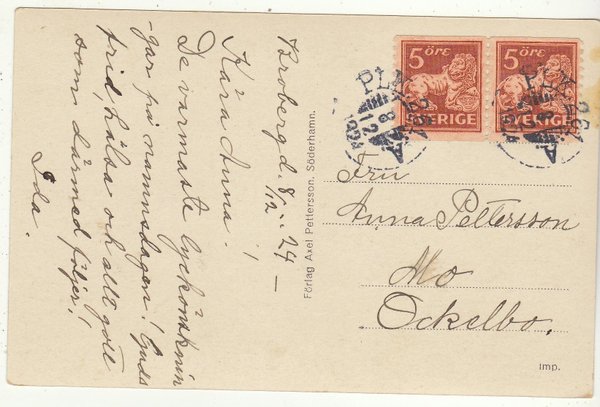 Broberg d. 8/12 .. 24 –
Kära Anna!
De varmaste lyckönsknin
gar på namnsdagen! Guds
frid, hälsa och allt gott
som därmed följer!
Ida.
Förlag Axel Pettersson, Söderhamn.
5 ÖRE 5 ÖRE
SVERIGE SVERIGE
Fru
Anna Pettersson
Mo
Ockelbo.
Imp.